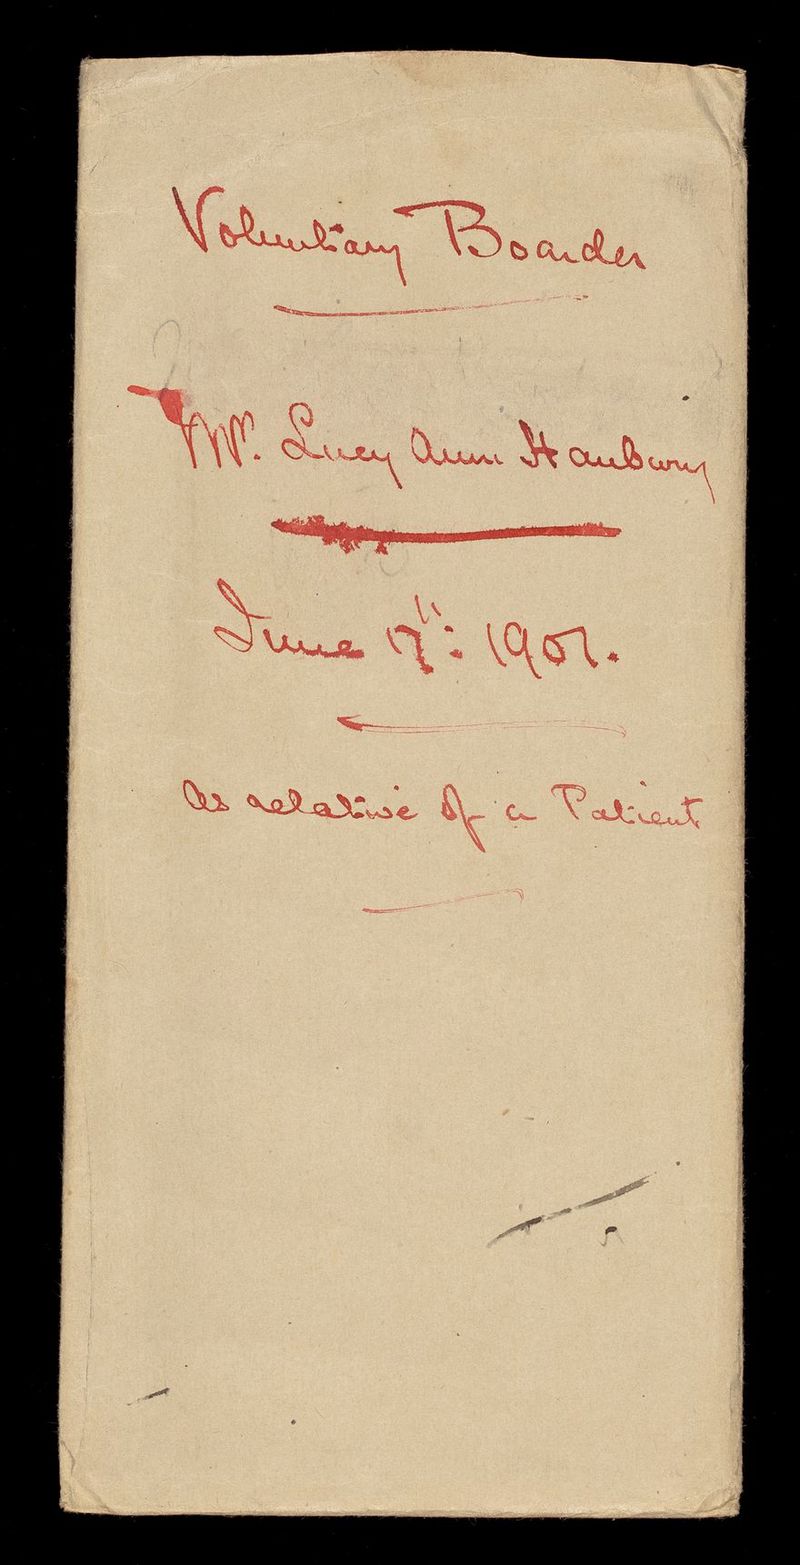 Voluntary Boarder
Mrs. Lucy Ann Hanbury
June 17": 1901.
As relative of a Patient